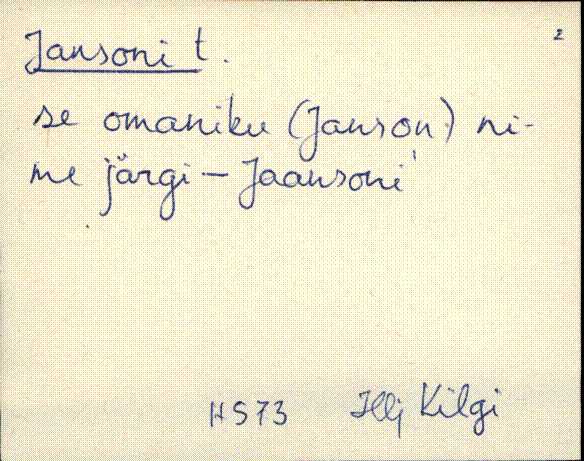 2
Jansoni t.
se omaniku (Janson) ni-
me järgi – Jaansoni'
HS73 Hlj Kilgi